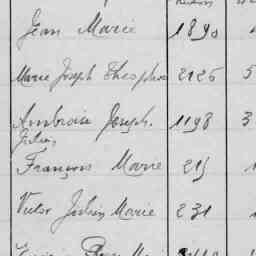 Jean Marie 1890
Marie Joseph Theophile 2126 5
Ambroise Joseph 1198 3
Julien
François Marie 215
Victor Julien Marie 231